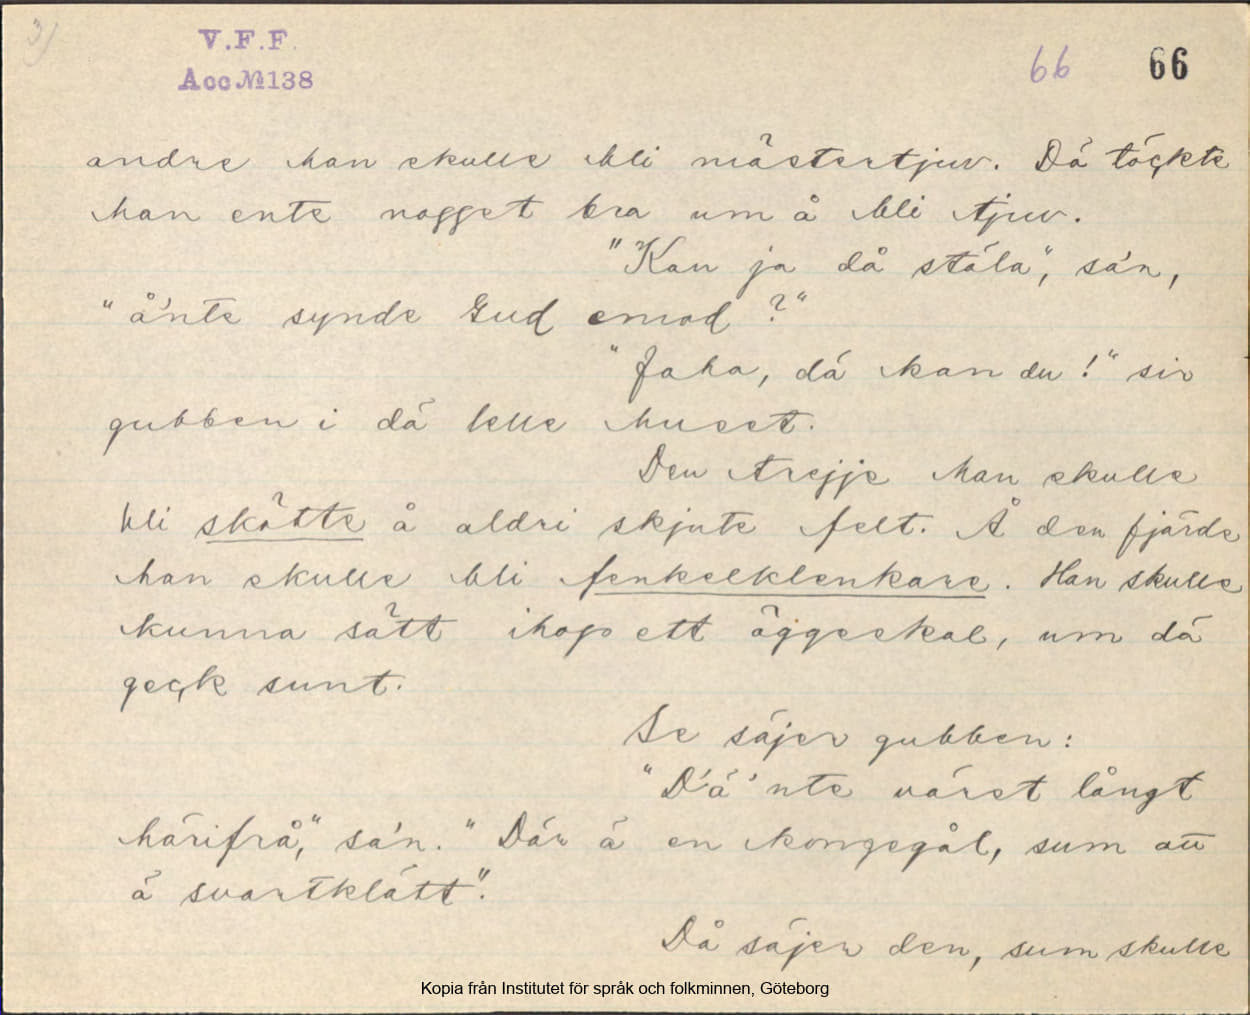 3)
V.F.F.
Acc№138
66 66
andre han skulle bli mästertjuv. Då töckte
han ente nogget bra um å bli tjuv.
"Kan ja då stäla", sa'n,
"å'nte synde Gud emod?"
"Jaha, dä kan du!" sir
gubben i dä lelle huset.
Den trejje han skulle
bli skötte å aldri skjute felt. Å den fjärde
han skulle bli fenkelklenkare. Han skulle
kunna sätt ihop ett äggeskal, um dä
geck sunt.
Se säjer gubben:
"D'ä'nte väret långt
härifrå," sa'n. "Där ä en kongegål, sum att
ä svartklätt".
Då säjer den, sum skulle
Kopia från Institutet för språk och folkminnen, Göteborg